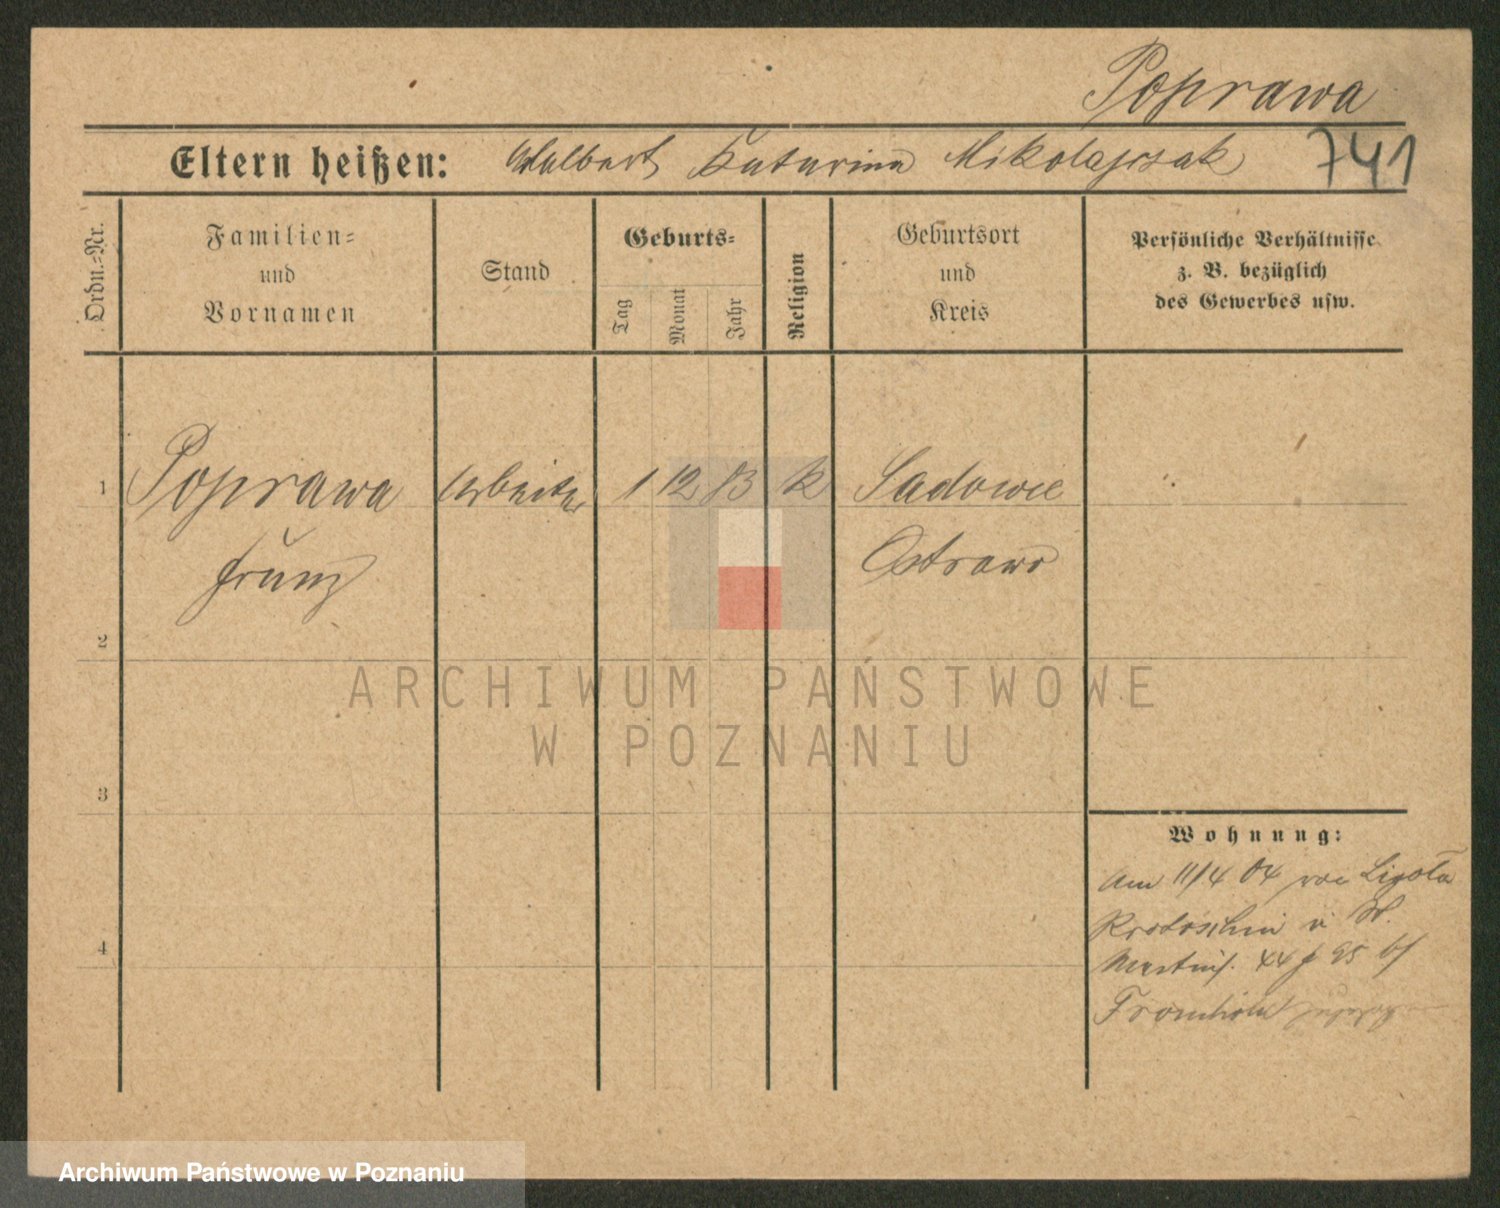 Poprawa
Eltern heißen: Adalbert Katarina Mikolajczak 741
Ordn.=Nr.
Familien= und Vornamen
Stand
Geburts=
Tag Monat Jahr
Religion
Geburtsort und Kreis
Persönliche Verhältnisse
z. B. bezüglich
des Gewerbes usw.
1 Poprawa Arbeiter 1 12 83 k Sadowie
Franz Ostrowo
2
3
4
ARCHIWUM PAŃSTWOWE
W POZNANIU
Wohnung:
Am 11/4 04 von Ligota
Krotoschin n. St.
Martinst.
Archiwum Państwowe w Poznaniu